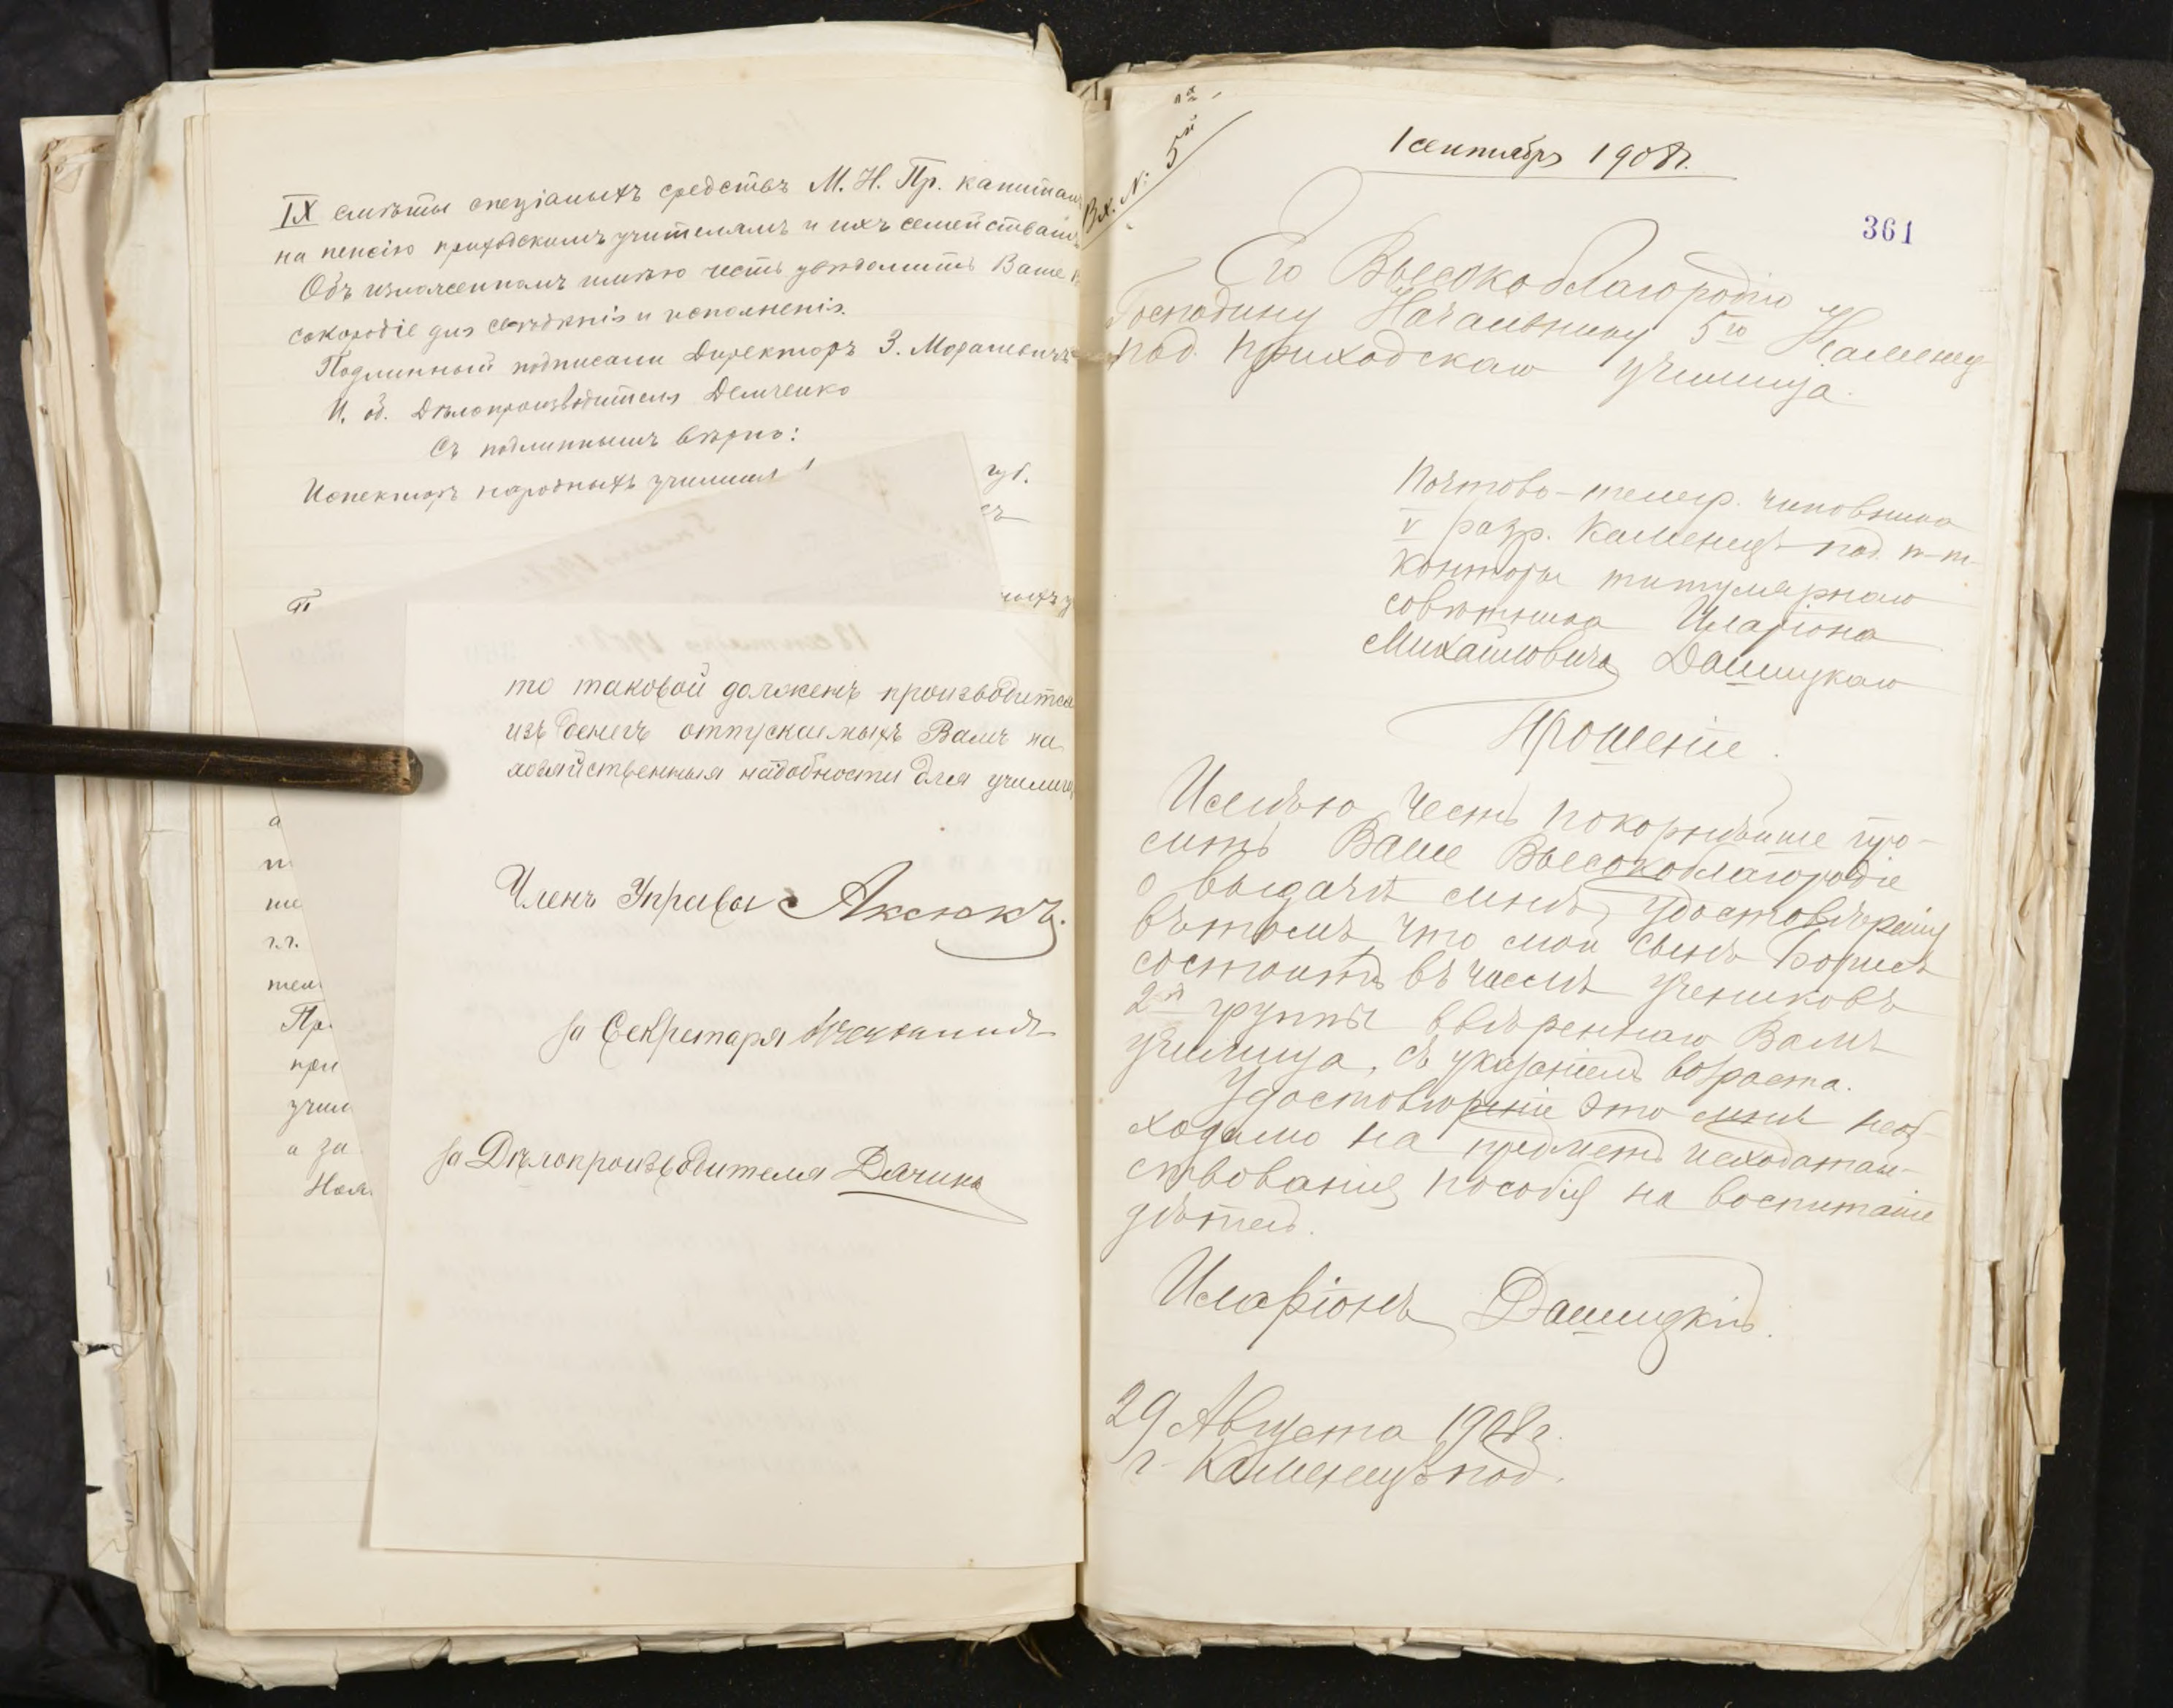 IX смѣты спеціальныхъ средствъ М. Н. Пр. капитал
на пенсію приходскимъ учителямъ и ихъ семействамъ
Объ изложенномъ имѣю честь увѣдомить Ваше
сокородіе для свѣдѣнія и исполненія.
Подлинный подписали Директоръ З.
И. об. Дѣлопроизводителя Демченко
Съ подлиннымъ вѣрно:
Инспекторъ народныхъ училищъ
губ.
то таковой долженъ производится
изъ денегъ отпускаемыхъ Вамъ на
хозяйственныя надобности для училища
Членъ Управы Аксюкъ.
за Секретаря
за Дѣлопроизводителя
а
ше
г.г.
Пр
при
учил
а за
Вх. № 5
1 сентября 1908 г.
361
Его Высокоблагородію
Господину Начальнику 5го Каменец
под. приходскаго училища.
Почтово-телегр. чиновника
V разр. Каменецъ-под. п-т
конторы титулярнаго
совѣтника Иларіона
Михайловича Дашицкаго
Прошеніе.
Имѣю честь покорнѣйше про-
сить Ваше Высокоблагородіе
о выдачѣ мнѣ удостовѣренія
въ томъ что мой сынъ Борисъ
состоитъ въ числѣ учениковъ
2й группы ввѣреннаго Вамъ
училища, съ указаніемъ возраста.
Удостовѣреніе это мнѣ необ-
ходимо на предметъ исходатай-
ствованія пособія на воспитаніе
дѣтей.
Иларіонъ Дашицкій.
29 Августа 1908 г.
г. Каменецъ под.